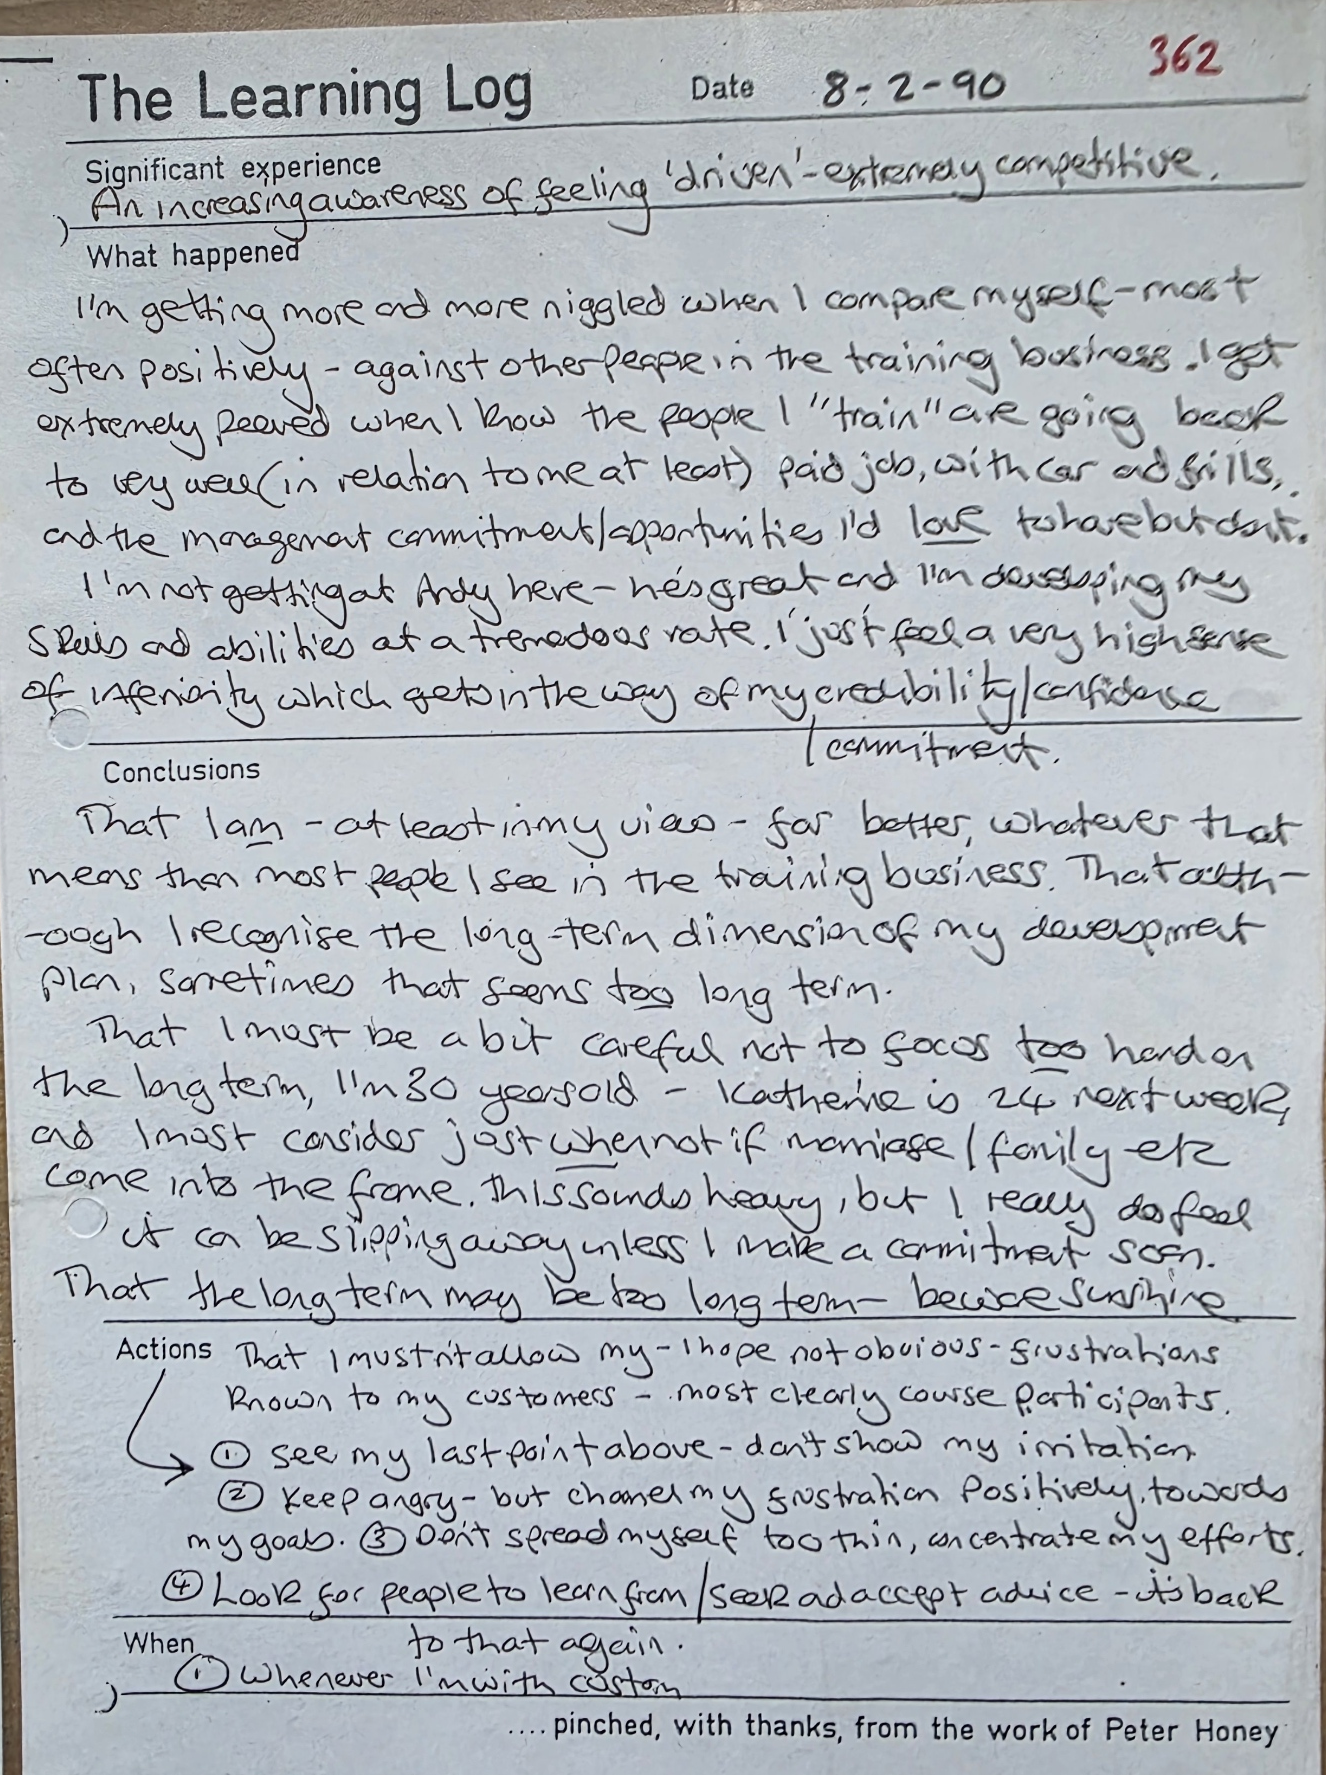 362
The Learning Log Date 8-2-90
Significant experience
An increasing awareness of feeling 'driven' - extremely competitive.
What happened
I'm getting more and more niggled when I compare myself - most
often positively - against other people in the training business. I get
extremely peeved when I know the people I "train" are going back
to very well (in relation to me at least) paid job, with car and frills,
and the management commitment/opportunities I'd love to have but don't.
I'm not getting at Andy here - he's great and I'm developing my
skills and abilities at a tremedoos rate. I just feel a very high sense
of inferiority which gets in the way of my credibility/confidence
/commitment.
Conclusions
That I am - at least in my view - far better, whatever that
means than most people I see in the training business. That alth-
-ough I recognise the long-term dimension of my development
plan, sometimes that seems too long term.
That I must be a bit careful not to focus too hard on
the long term, I'm 30 years old - Katherine is 24 next week,
and I must consider just when not if marriage/family etc
come into the frame. This sounds heavy, but I really do feel
it can be slipping away unless I make a commitment soon.
That the long term may be too long term - beware sunshine
Actions That I mustn't allow my - I hope not obvious - frustrations
known to my customers - most clearly course participants.
① see my last point above - don't show my irritation
② Keep angry - but channel my frustration positively, towards
my goals. ③ Don't spread myself too thin, concentrate my efforts.
④ Look for people to learn from/seek ad accept advice - it's back
to that again.
When
① Whenever I'm with custom
.... pinched, with thanks, from the work of Peter Honey